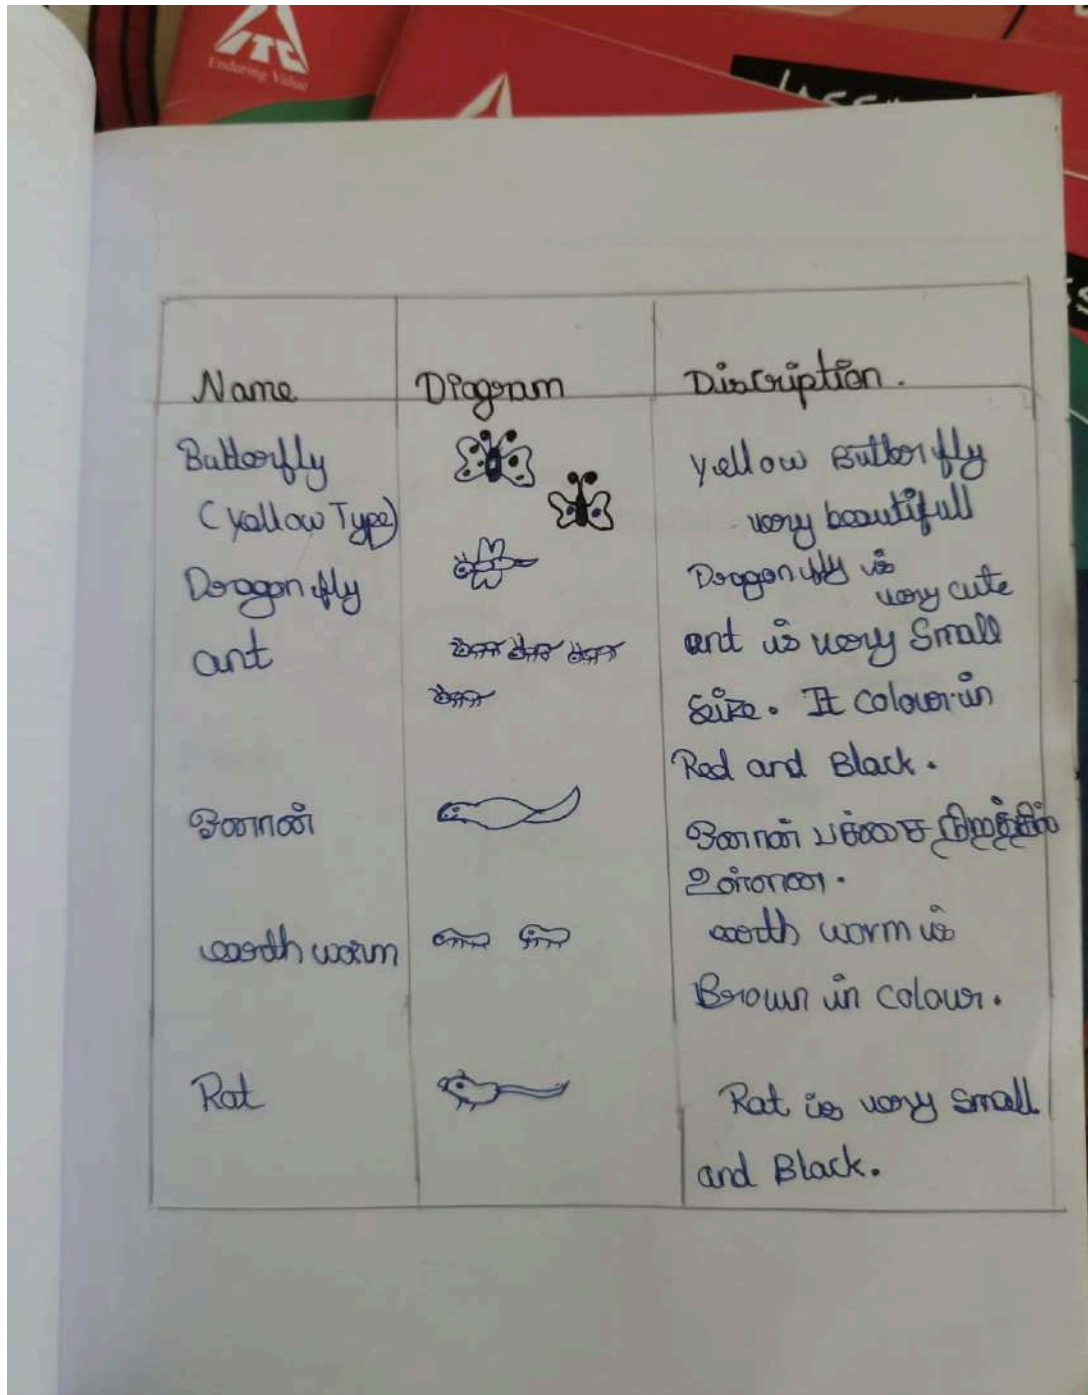 ITC
Enduring Value
Name Diagram Discription.
Butterfly
(Yellow Type)
yellow Butterfly
very beautifull
Dragonfly
Dragonfly is
very cute
ant
ant is very Small
Seize. It colour in
Red and Black.
ஓணான்
ஓணான் பச்சை நிறத்தில்
உள்ளன.
earth worm
earth worm is
Brown in colour.
Rat
Rat is very small
and Black.